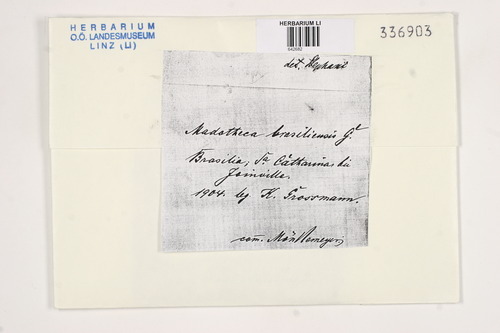 HERBARIUM
O.Ö. LANDESMUSEUM
LINZ (LI)
HERBARIUM LI
336903
det. Stephani
Madotheca brasiliensis G.
Brasilia, Sa Catharina bei
Joinville.
1904. leg K. Grossmann.
com. Mönkemeyer